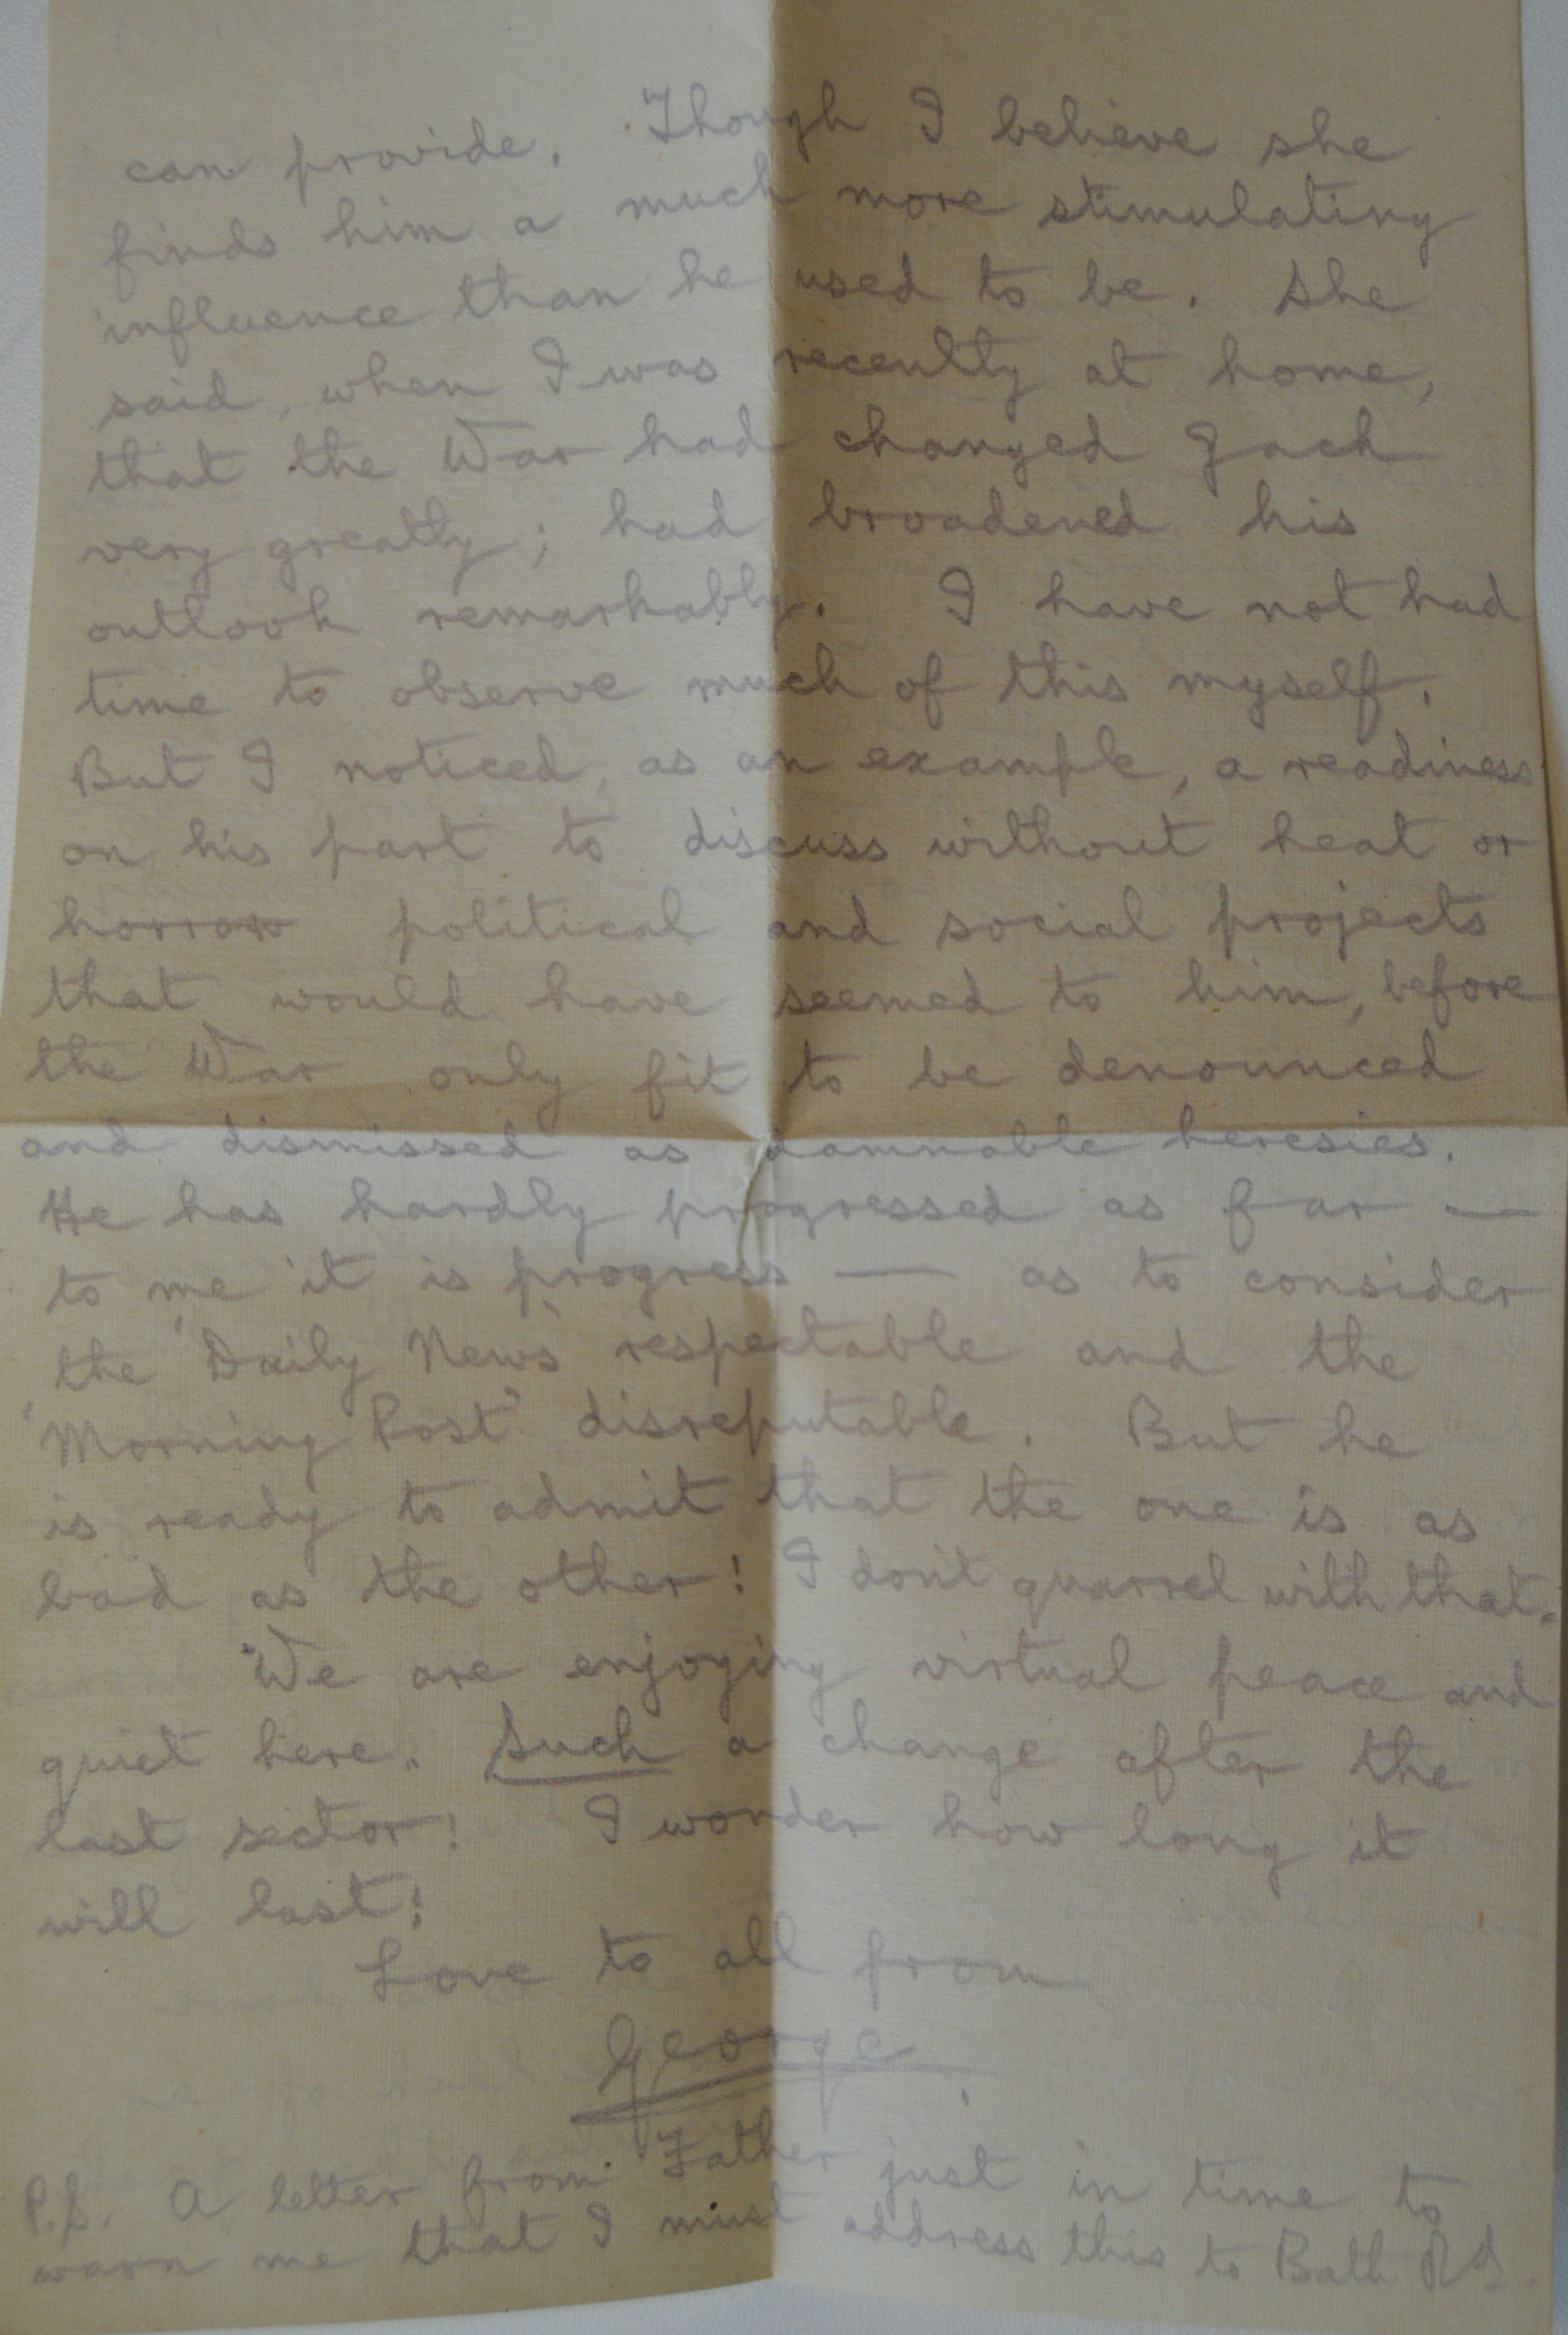 can provide. Though I believe she
finds him a much more stimulating
influence than he used to be. She
said, when I was recently at home,
that the War had changed Jack
very greatly; had broadened his
outlook remarkably. I have not had
time to observe much of this myself.
But I noticed, as an example, a readiness
on his part to discuss without heat or
horror political and social projects
that would have seemed to him, before
the War only fit to be denounced
and dismissed as damnable heresies.
He has hardly progressed as far —
to me it is progress — as to consider
the 'Daily News' respectable and the
'Morning Post' disreputable. But he
is ready to admit that the one is as
bad as the other! I don't quarrel with that.
We are enjoying virtual peace and
quiet here. Such a change after the
last sector! I wonder how long it
will last!
Love to all from
George
P.S. A letter from Father just in time to
warn me that I must address this to Bath Rd.